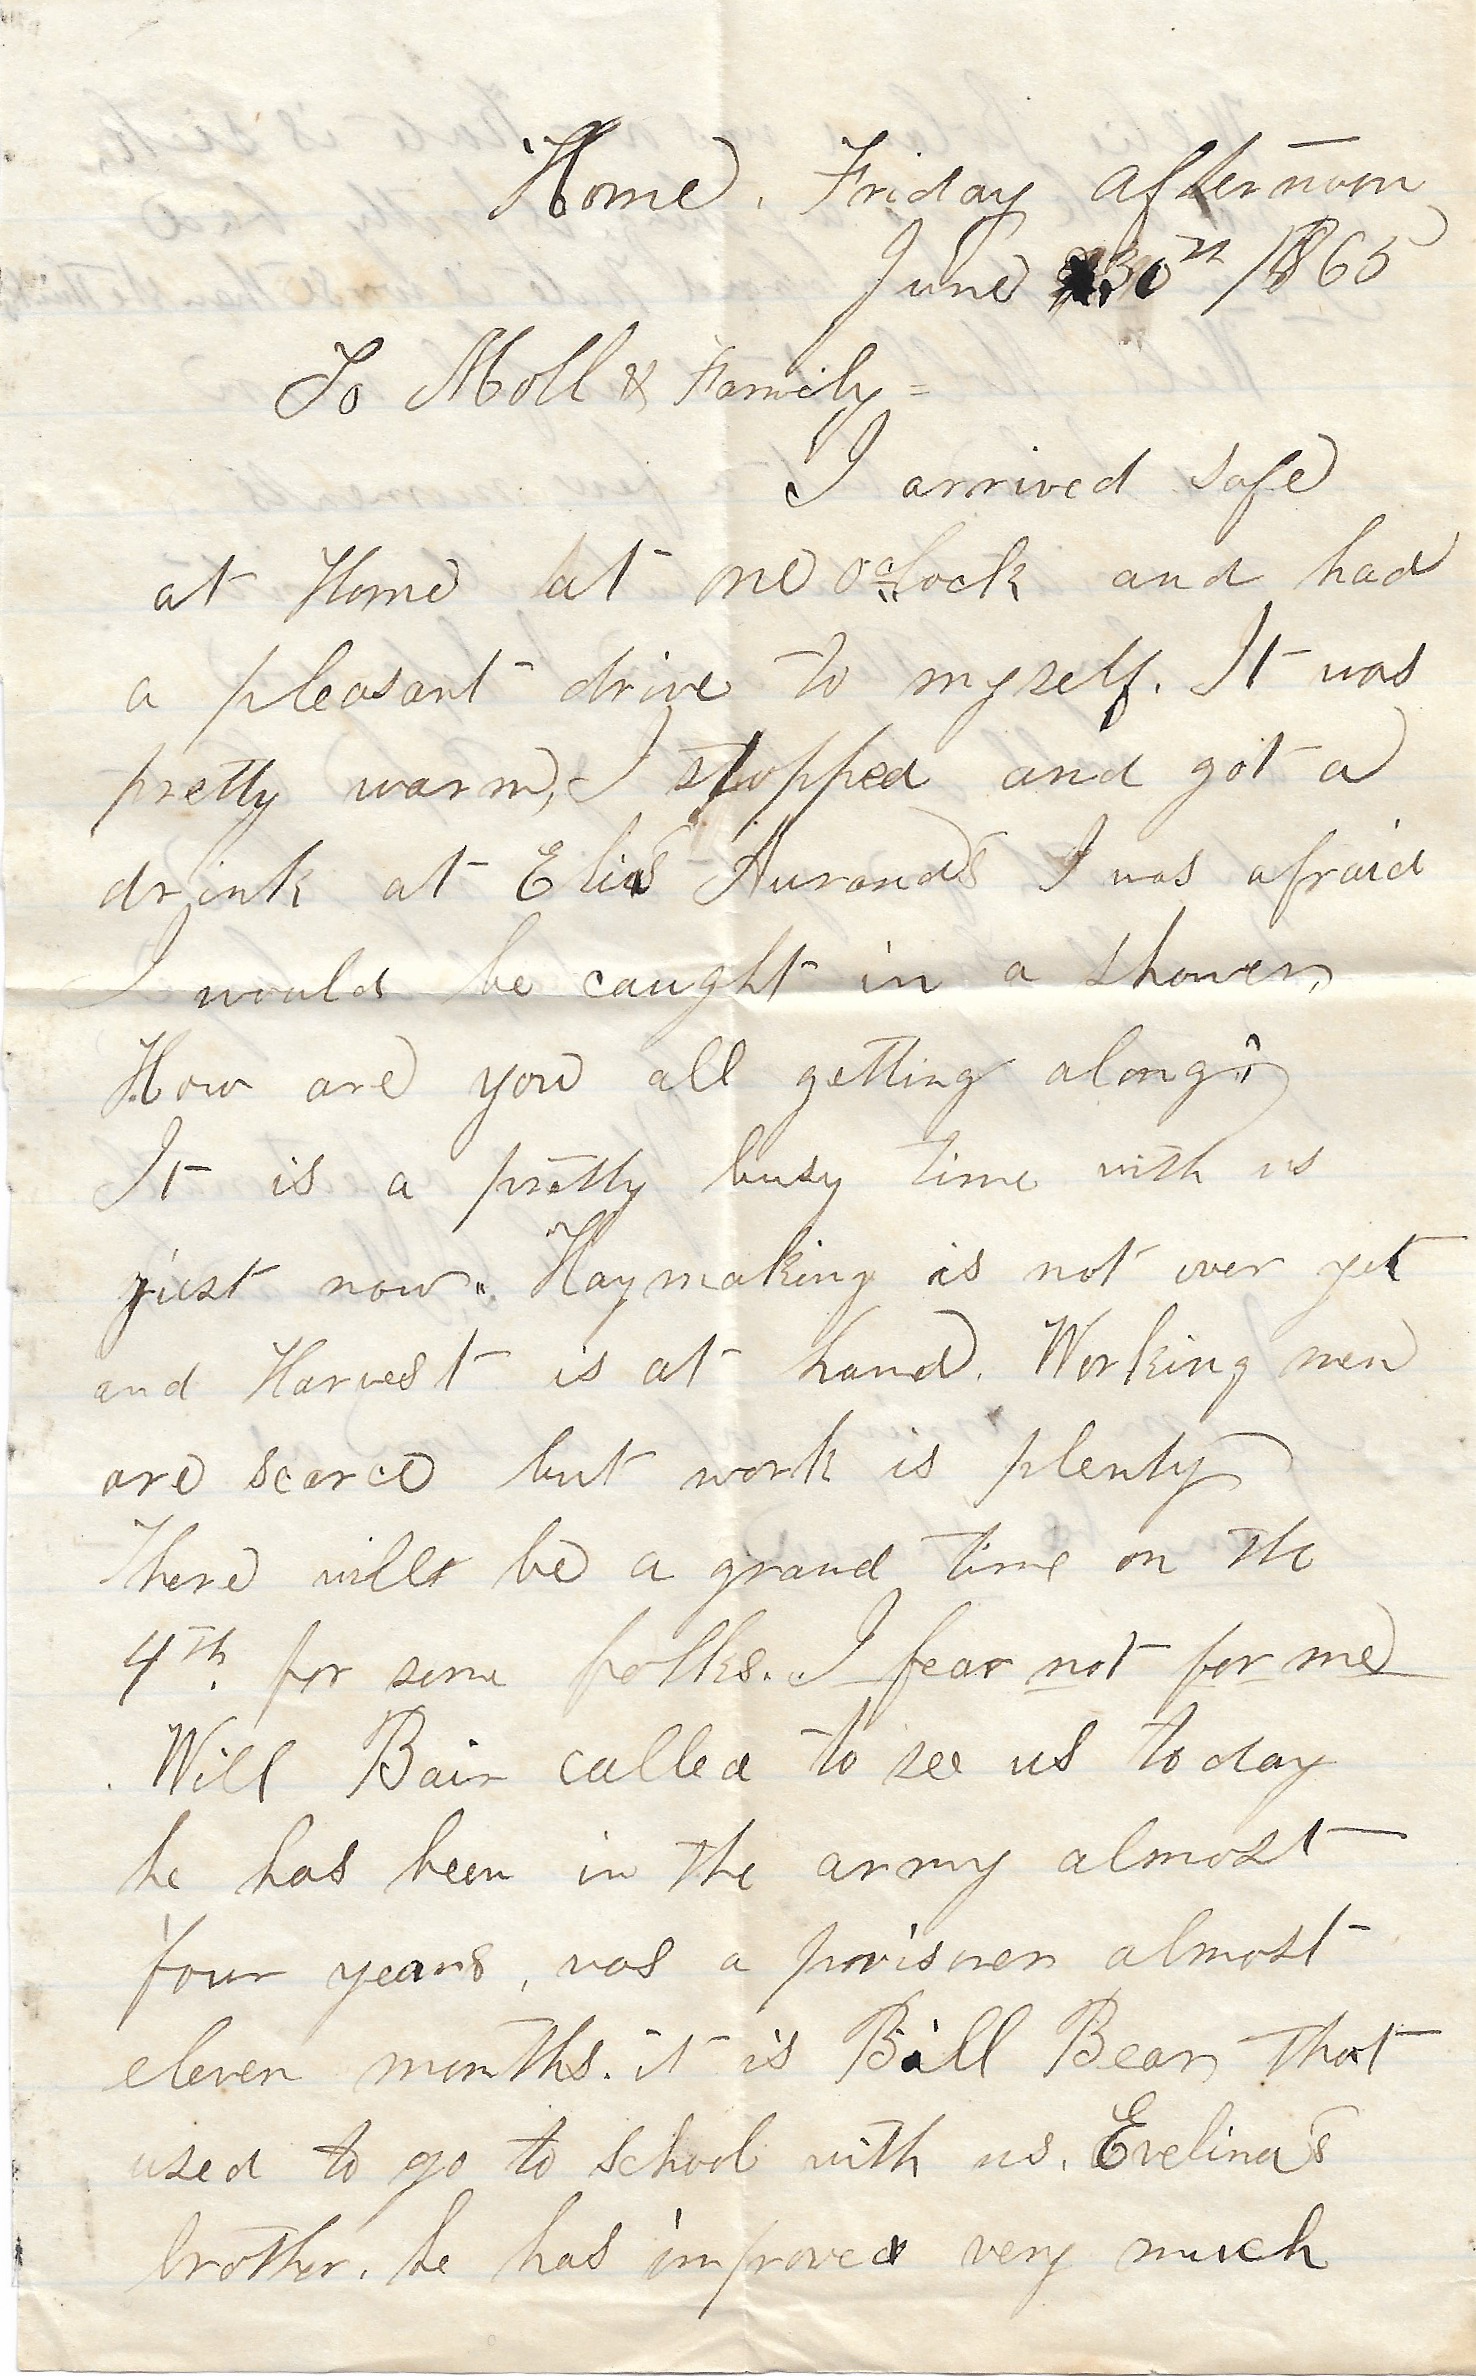 Home. Friday afternoon
June 30th 1865
To Moll & Family =
I arrived safe
at Home at one oclock and had
a pleasant drive to myself. It was
pretty warm, I stopped and got a
drink at Elias Aurands I was afraid
I would be caught in a shower,
How are you all getting along?
It is a pretty busy time with us
just now. Haymaking is not over yet
and Harvest is at hand. Working men
are scarce but work is plenty
There will be a grand time on the
4th. for some folks. I fear not for me
Will Bair called to see us to day
he has been in the army almost
four years, was a prisoner almost
eleven months. it is Bill Bear, that
used to go to school with us. Evelina's
brother. he has improved very much